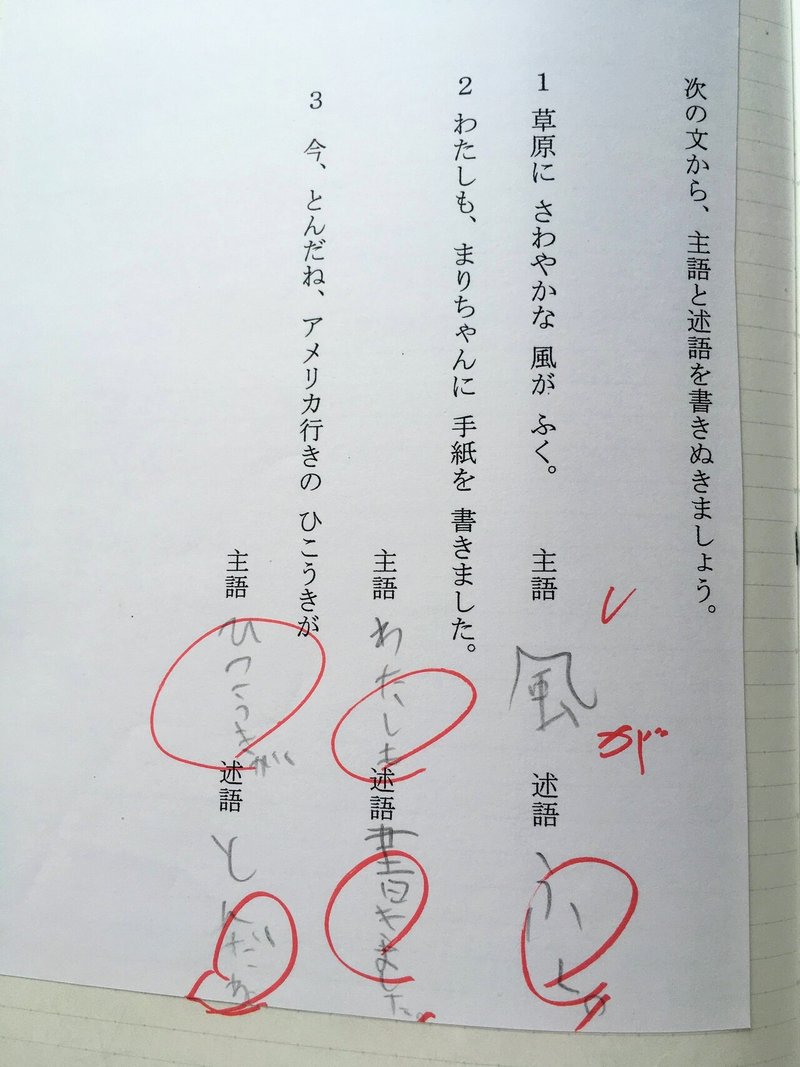 次の文から、主語と述語を書きぬきましょう。
1 草原に さわやかな 風が ふく。
主語 風が 述語 ふく。
2 わたしも、まりちゃんに 手紙を 書きました。
主語 わたしも 述語 書きました。
3 今、とんだね、アメリカ行きの ひこうきが
主語 ひこうきが 述語 とんだね